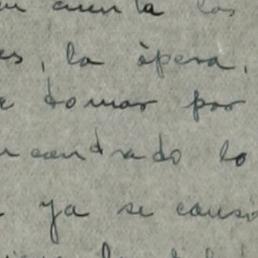 cuenta las
es, la ópera,
tomar por
encontrado lo
ya se causó